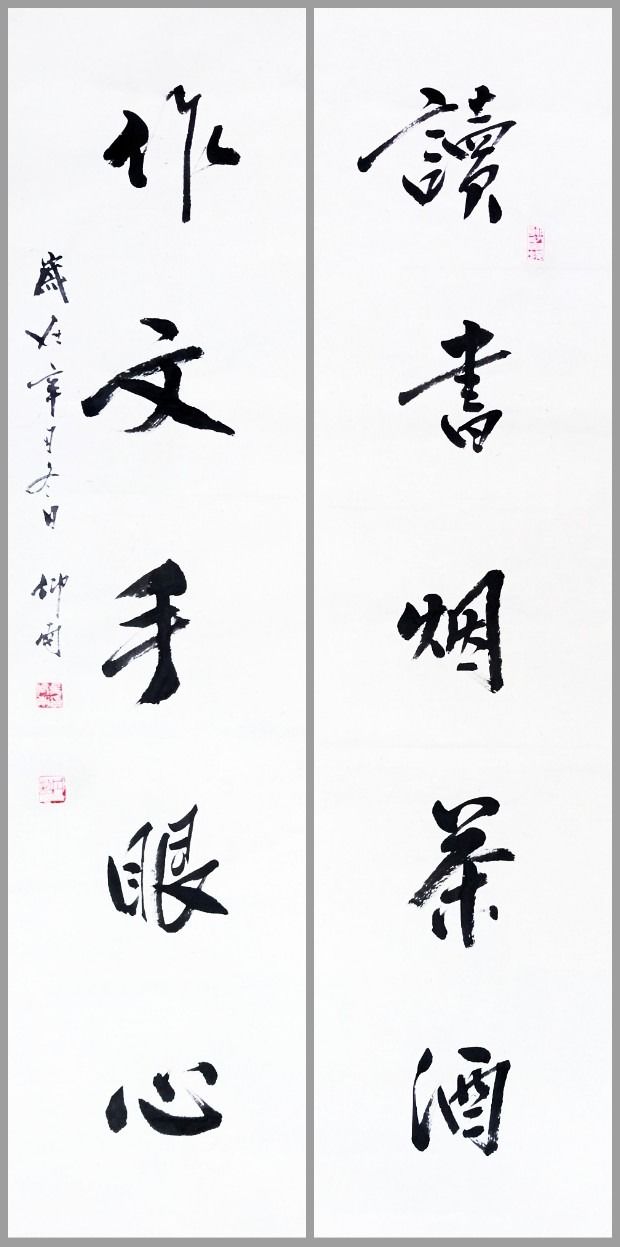 讀書烟茶酒
作文手眼心
歲在辛丑冬日 仰南